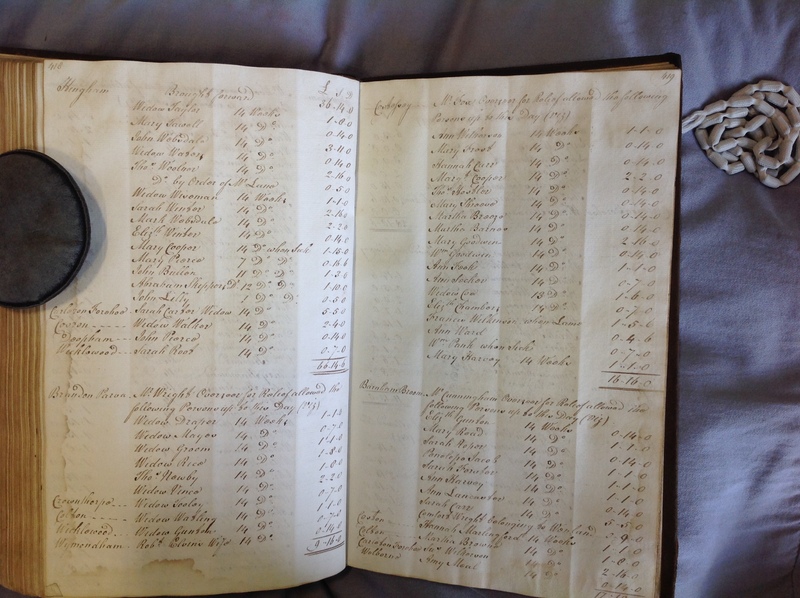 418
Hingham Brought forward £ S D
36-14-0
Widow Taylor 14 Weeks 1-8-0
Mary Farwell 14 Do 0-14-0
John Wobsdale 14 Do 3-11-0
Widow Waters 14 Do 0-14-0
Thos Woolner 14 Do 2-16-0
Do by Order of Mr Lane 0-5-0
Widow Wiseman 14 Weeks 1-1-0
Sarah Wenter 14 Do 2-16-0
Mark Wobsdale 14 Do 2-2-0
Elizth Wenter 14 Do 0-14-0
Mary Cooper 14 Do when Sick
Mary Pearce 7 Do Do 0-16-6
John Bullen 11 Do Do 1-3-6
Abraham Shepperd 12 Do Do 1-10-0
John Lilly 1 Do Do 0-5-0
Carleton Forehoe Sarah Carter Widow 14 Do 5-5-0
Coston Widow Walker 14 Do 2-4-0
Deopham John Pearce 14 Do 0-14-0
Wicklewood Sarah Root 14 Do 0-7-0
66-14-6
Brandon Parva Mr Wright Overseer for Relief allowed the
following Persons up to this Day (Vizt)
Widow Draper 14 Weeks
Widow Mayes 14 Do 0-7-0
Widow Groom 14 Do 1-1-0
Widow Reeve 14 Do 1-8-0
Thos Newby 14 Do 1-0-0
Widow Vince 14 Do 2-2-0
Crownthorpe Widow Sooley 14 Do 0-7-0
Colton Widow Watling 14 Do 1-1-0
Wicklewood Widow Gunton 14 Do 0-7-0
Wymondham Robt Elvins Wife 14 Do 0-14-0
9-16-0
419
Cossessy Mr Fox Overseer for Relief allowed the following
Persons up to this Day (Vizt)
Ann Wilkinson 14 Weeks 1-1-0
Mary Frost 14 Do 0-14-0
Hannah Carr 14 Do 0-14-0
Mary Cooper 14 Do 2-2-0
Thos Hoobler 14 Do 0-14-0
Mary Skeowe 14 Do 0-14-0
Martha Breeze 14 Do 0-14-0
Martha Barnes 14 Do 0-14-0
Mary Goodwin 14 Do 2-16-0
Wm Goodwin 14 Do 0-14-0
Ann 14 Do 1-1-0
Ann 14 Do 0-7-0
Widow Cox 13 Do 1-6-0
Elizth Chambers 14 Do 0-7-0
Francis Wilkinson when Lame 1-5-6
Ann Ward 0-4-6
Wm Pank when Sick 0-7-0
Mary Harvey 14 Weeks 1-1-0
16-16-0
Barnham Broom Mr Cunningham Overseer for Relief allowed the
following Persons up to this Day (Vizt)
Elizth Gunton 14 Weeks 0-14-0
Mary Read 14 Do 1-1-0
Sarah Roper 14 Do 0-14-0
Penelope Jacob 14 Do 1-1-0
Sarah Fowler 14 Do 1-1-0
Ann Harvey 14 Do 1-1-0
Ann Lancaster 14 Do 1-1-0
Sarah Carr 14 Do 0-14-0
Comfort Wright belonging to Wramland 5-5-0
Coston Hannah Markingford 14 Weeks
Colton Martha Brown 14 Do 1-1-0
Carleton Forehoe Wilkerson 14 Do
Welborne Amy Maul 14 Do 0-14-0